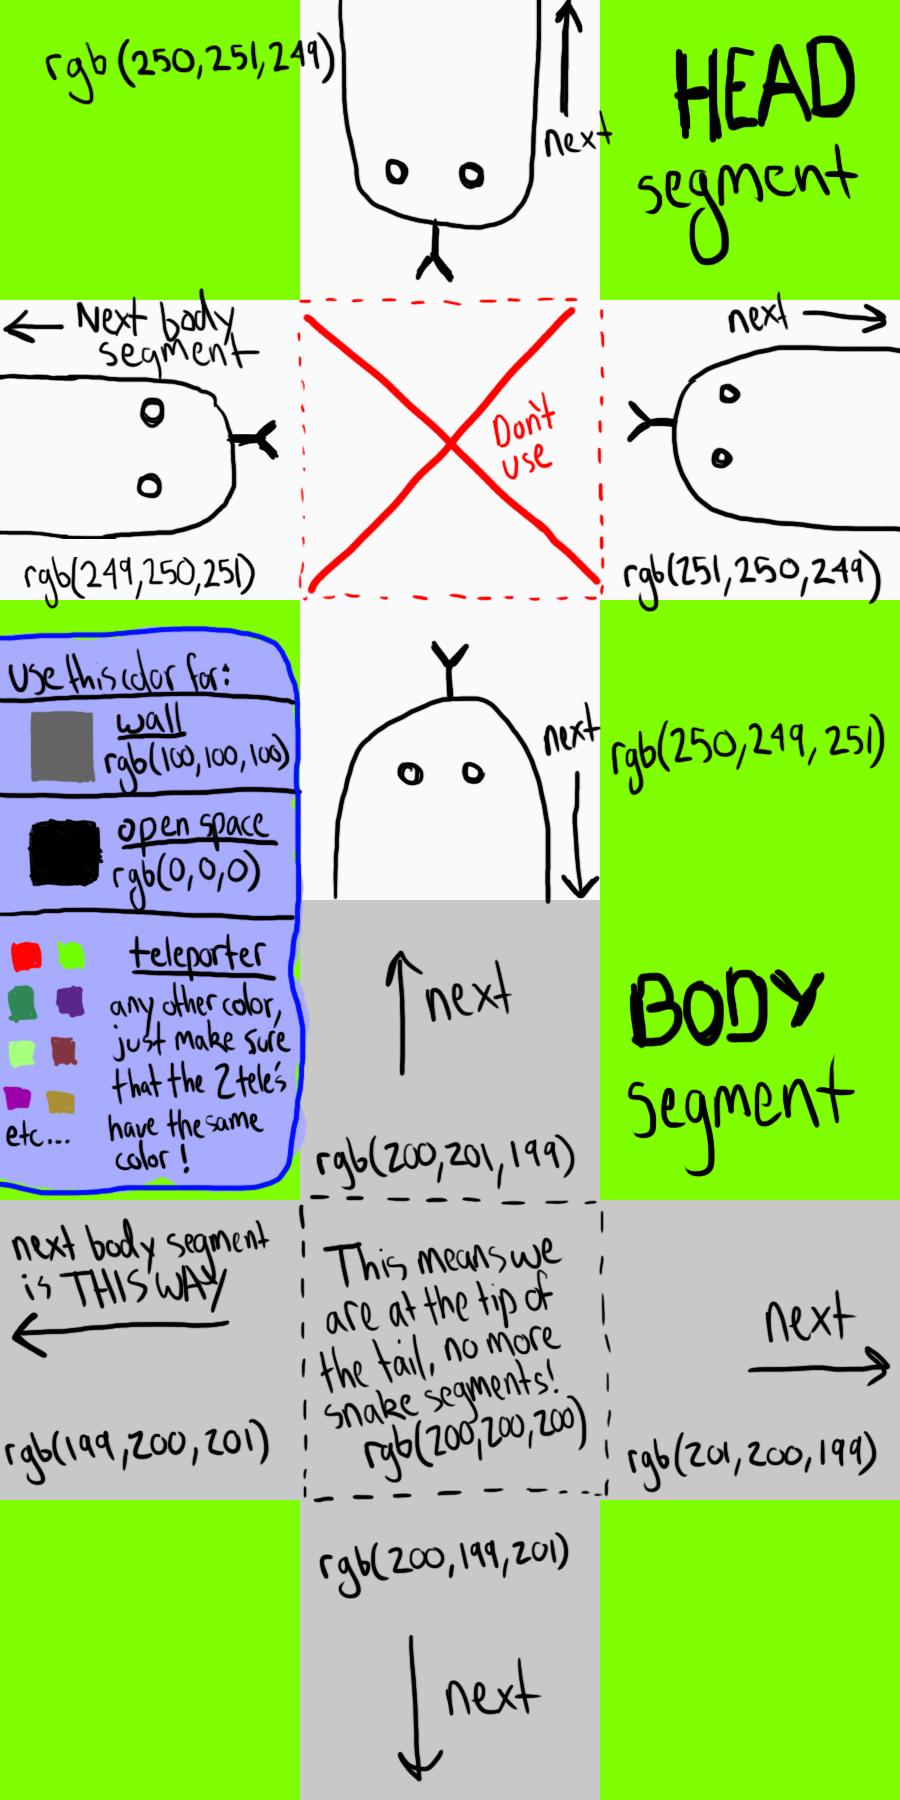 rgb (250,251,249)
next
HEAD
segment
Next body
segment
rgb(249,250,251)
Don't
use
next
rgb(251,250,249)
use this color for:
wall
rgb(100,100,100)
open space
rgb(0,0,0)
teleporter
any other color,
just make sure
that the 2 tele's
have the same
color!
etc...
next
rgb(250,249,251)
next
rgb(200,201,199)
BODY
segment
next body segment
is THIS WAY
rgb(199,200,201)
This means we
are at the tip of
the tail, no more
snake segments!
rgb(200,200,200)
next
rgb(201,200,199)
rgb(200,199,201)
next